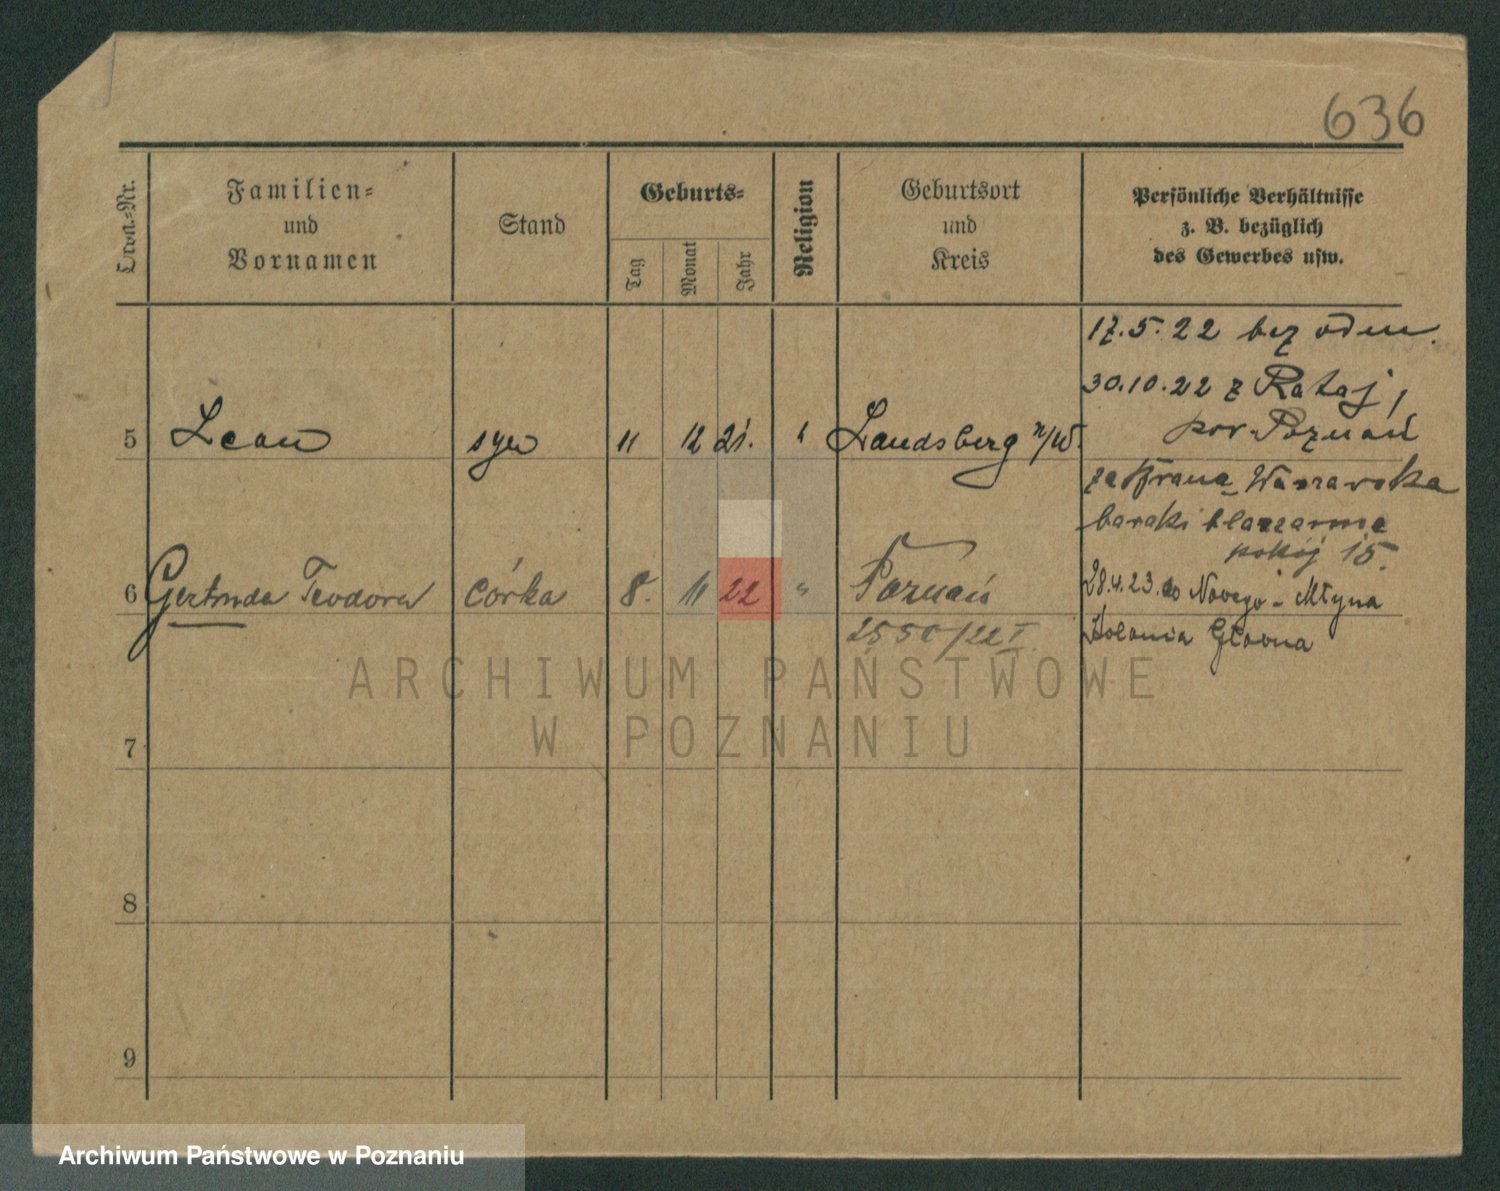 636
Ordn.-Nr.
Familien-
und
Vornamen
Stand
Geburts-
Tag
Monat
Jahr
Religion
Geburtsort
und
Kreis
Persönliche Verhältnisse
z. B. bezüglich
des Gewerbes usw.
17.5.22 bez odm.
30.10.22 z Rataj,
pow. Poznań
5 Leon syn 11 12 21. " Landsberg n/W.
za Bramą Warszawska
baraki
pokój 15.
6 Gertruda Teodora córka 8. 11 22 " Poznań
28.4.23. do Nowego-Młyna
2550/22 I
Kolonia Główna
7
8
9
ARCHIWUM PAŃSTWOWE
W POZNANIU
Archiwum Państwowe w Poznaniu